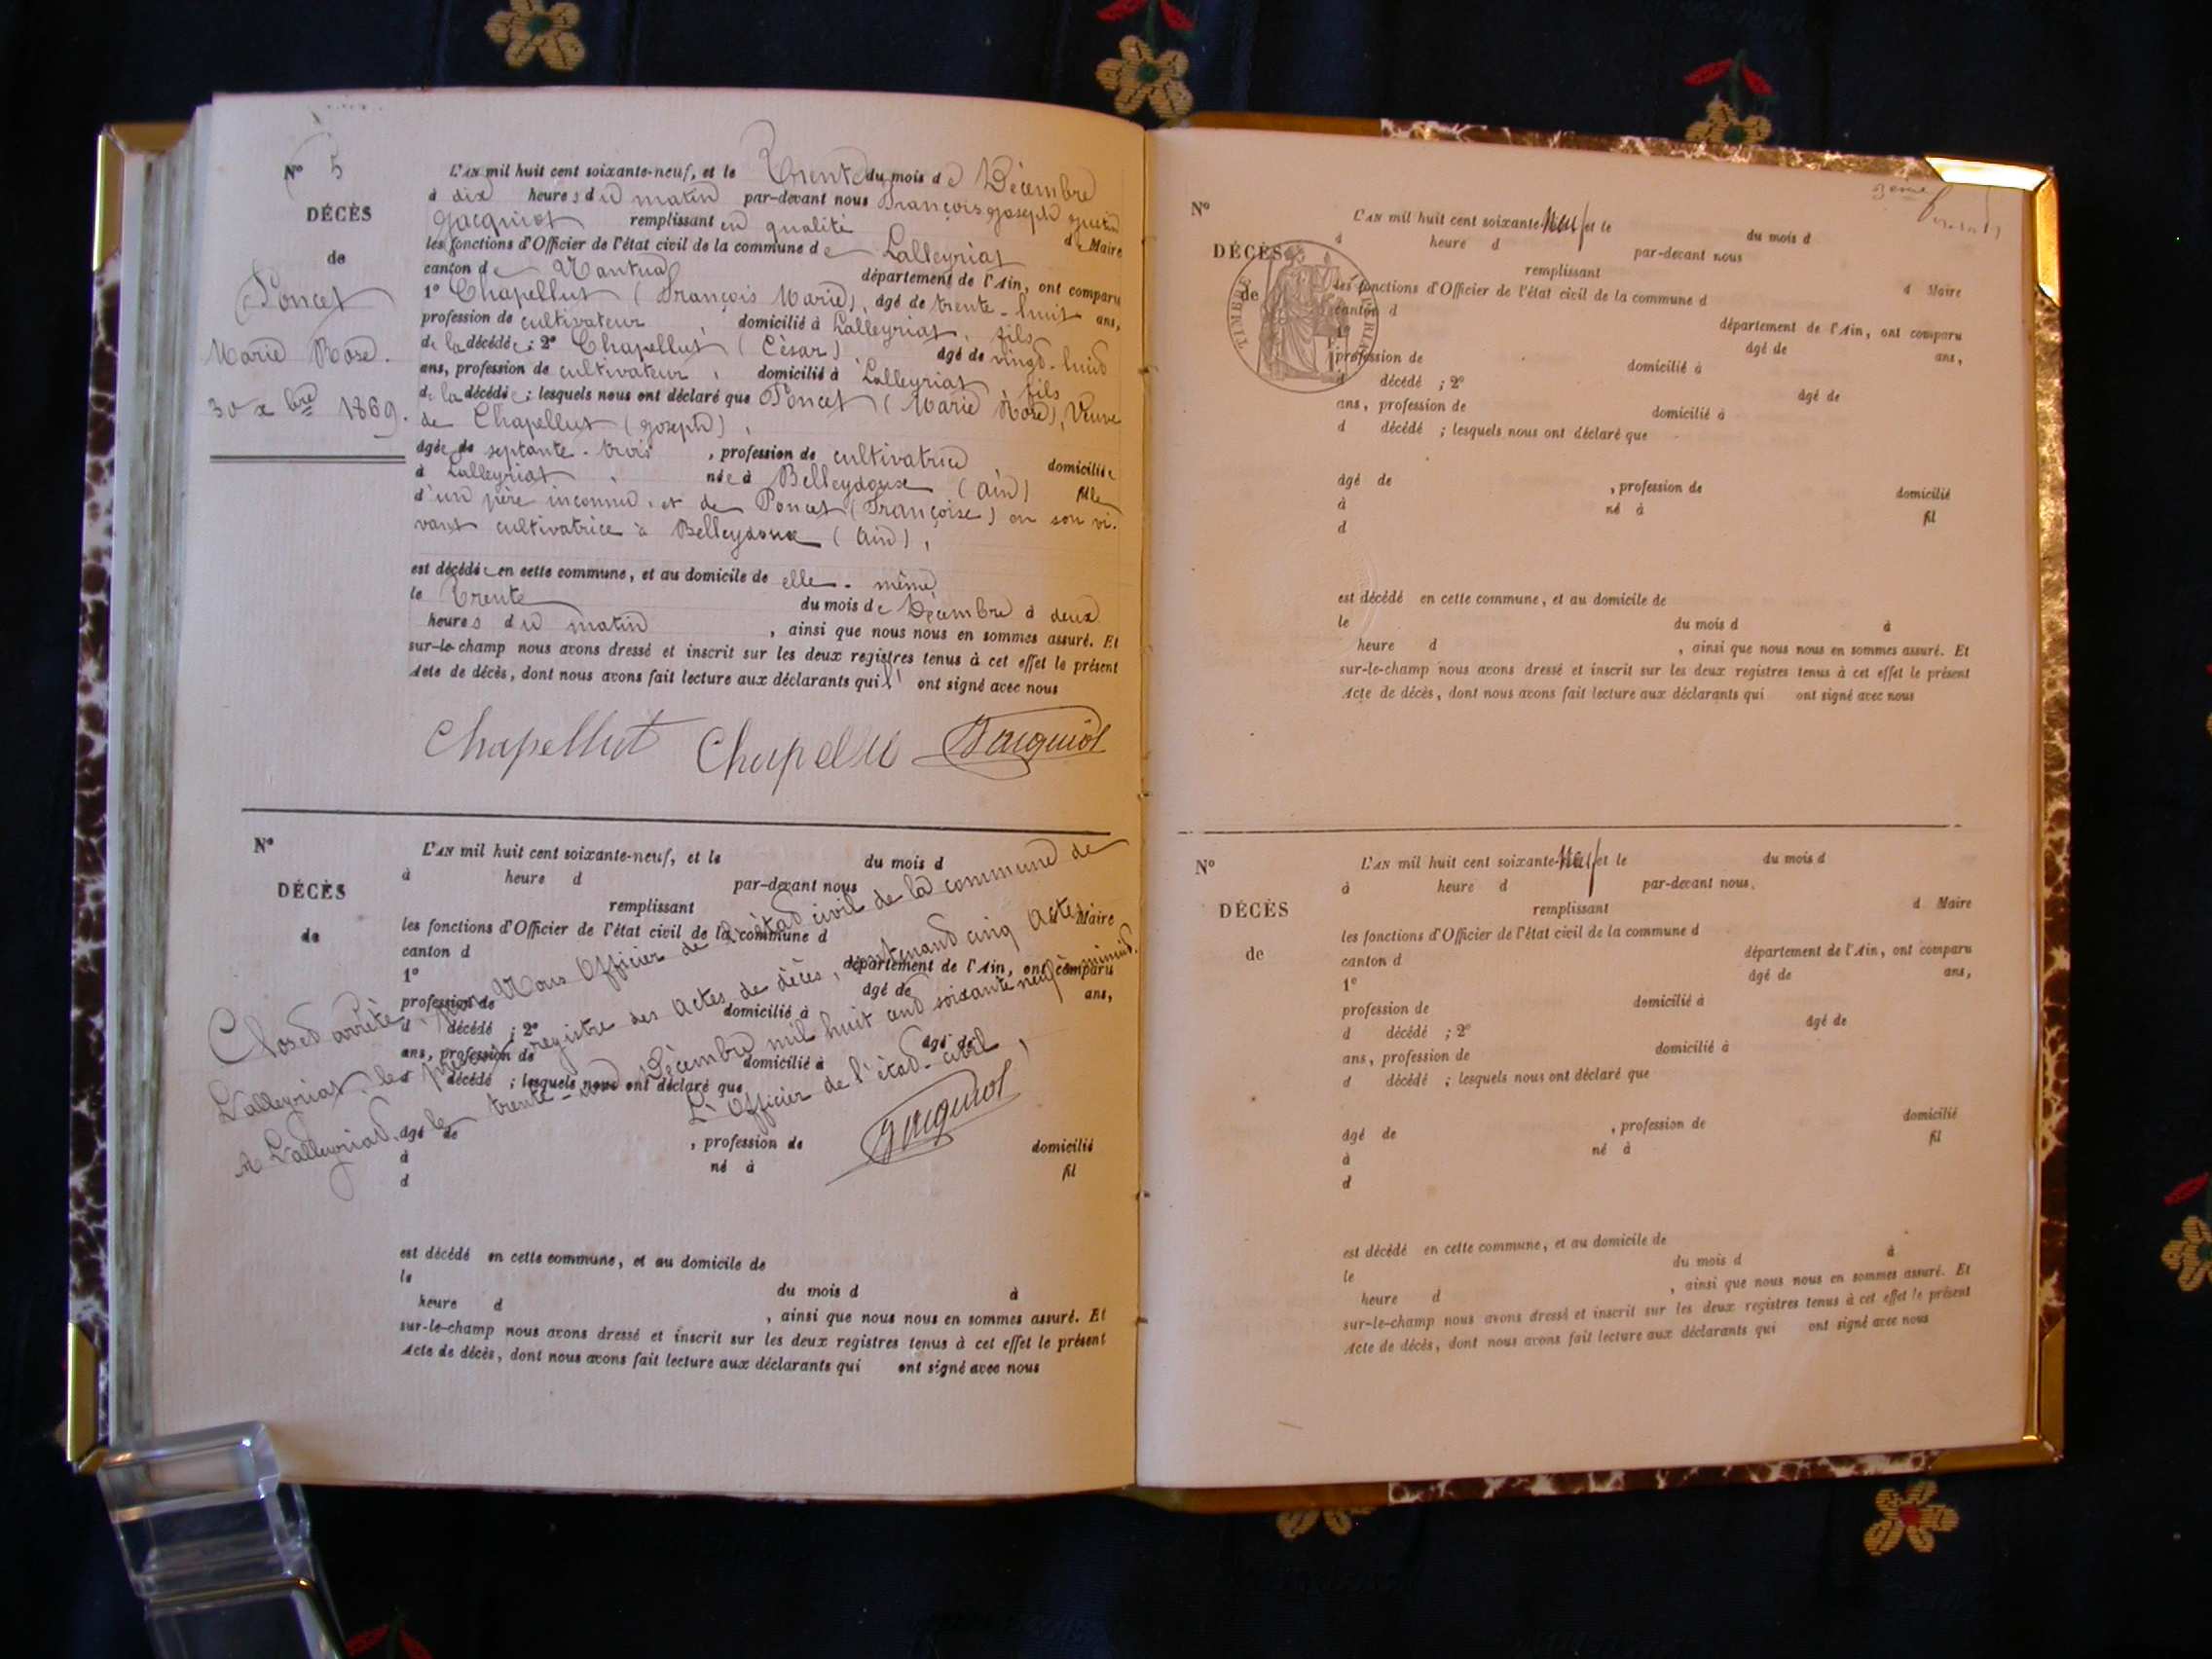 N° 5
DÉCÈS
de
Poncet
Marie Rose.
30 xbre 1869.
L'AN mil huit cent soixante-neuf, et le Trente du mois de Décembre
à dix heures du matin par-devant nous François Joseph
Jacquiot remplissant en qualité de Maire
les fonctions d'Officier de l'état civil de la commune de Lalleyriat
canton de Nantua département de l'Ain, ont comparu
1° Chapellut (François Marie), âgé de trente-huit ans,
profession de cultivateur, domicilié à Lalleyriat, fils
de la décédée; 2° Chapellut (César) âgé de vingt-huit
ans, profession de cultivateur, domicilié à Lalleyriat, fils
de la décédée; lesquels nous ont déclaré que Poncet (Marie Rose), Veuve
de Chapellut (Joseph),
âgée de septante-trois, profession de cultivatrice, domiciliée
à Lalleyriat, née à Belleydoux (Ain) fille
d'un père inconnu, et de Poncet (Françoise) en son vi-
vant cultivatrice à Belleydoux (Ain),
est décédée en cette commune, et au domicile de elle-même
le Trente du mois de Décembre à deux
heures du matin, ainsi que nous nous en sommes assuré. Et
sur-le-champ nous avons dressé et inscrit sur les deux registres tenus à cet effet le présent
Acte de décès, dont nous avons fait lecture aux déclarants qui ont signé avec nous
Chapellut Chapellu Jacquiot
N°
DÉCÈS
de
L'AN mil huit cent soixante-neuf, et le du mois d
à heure d par-devant nous
remplissant d Maire
les fonctions d'Officier de l'état civil de la commune d
canton d département de l'Ain, ont comparu
1° âgé de ans,
profession de domicilié à
d décédé ; 2° âgé de
ans, profession de domicilié à
d décédé ; lesquels nous ont déclaré que
âgé de , profession de domicilié
à né à fil
d
Clos et arrêté par Nous Officier de l'état civil de la commune de
Lalleyriat, le présent registre des actes de décès, contenant cinq actes
A Lalleyriat, le trente-un Décembre mil huit cent soixante neuf à minuit.
L'Officier de l'état-civil,
Jacquiot
est décédé en cette commune, et au domicile de
le du mois d à
heure d , ainsi que nous nous en sommes assuré. Et
sur-le-champ nous avons dressé et inscrit sur les deux registres tenus à cet effet le présent
Acte de décès, dont nous avons fait lecture aux déclarants qui ont signé avec nous
N°
DÉCÈS
de
TIMBRE IMPÉRIAL
L'AN mil huit cent soixante-Neuf et le du mois d
à heure d par-devant nous
remplissant d Maire
les fonctions d'Officier de l'état civil de la commune d
canton d département de l'Ain, ont comparu
1° âgé de ans,
profession de domicilié à
d décédé ; 2° âgé de
ans, profession de domicilié à
d décédé ; lesquels nous ont déclaré que
âgé de , profession de domicilié
à né à fil
d
est décédé en cette commune, et au domicile de
le du mois d à
heure d , ainsi que nous nous en sommes assuré. Et
sur-le-champ nous avons dressé et inscrit sur les deux registres tenus à cet effet le présent
Acte de décès, dont nous avons fait lecture aux déclarants qui ont signé avec nous
N°
DÉCÈS
de
L'AN mil huit cent soixante-Neuf et le du mois d
à heure d par-devant nous
remplissant d Maire
les fonctions d'Officier de l'état civil de la commune d
canton d département de l'Ain, ont comparu
1° âgé de ans,
profession de domicilié à
d décédé ; 2° âgé de
ans, profession de domicilié à
d décédé ; lesquels nous ont déclaré que
âgé de , profession de domicilié
à né à fil
d
est décédé en cette commune, et au domicile de
le du mois d à
heure d , ainsi que nous nous en sommes assuré. Et
sur-le-champ nous avons dressé et inscrit sur les deux registres tenus à cet effet le présent
Acte de décès, dont nous avons fait lecture aux déclarants qui ont signé avec nous